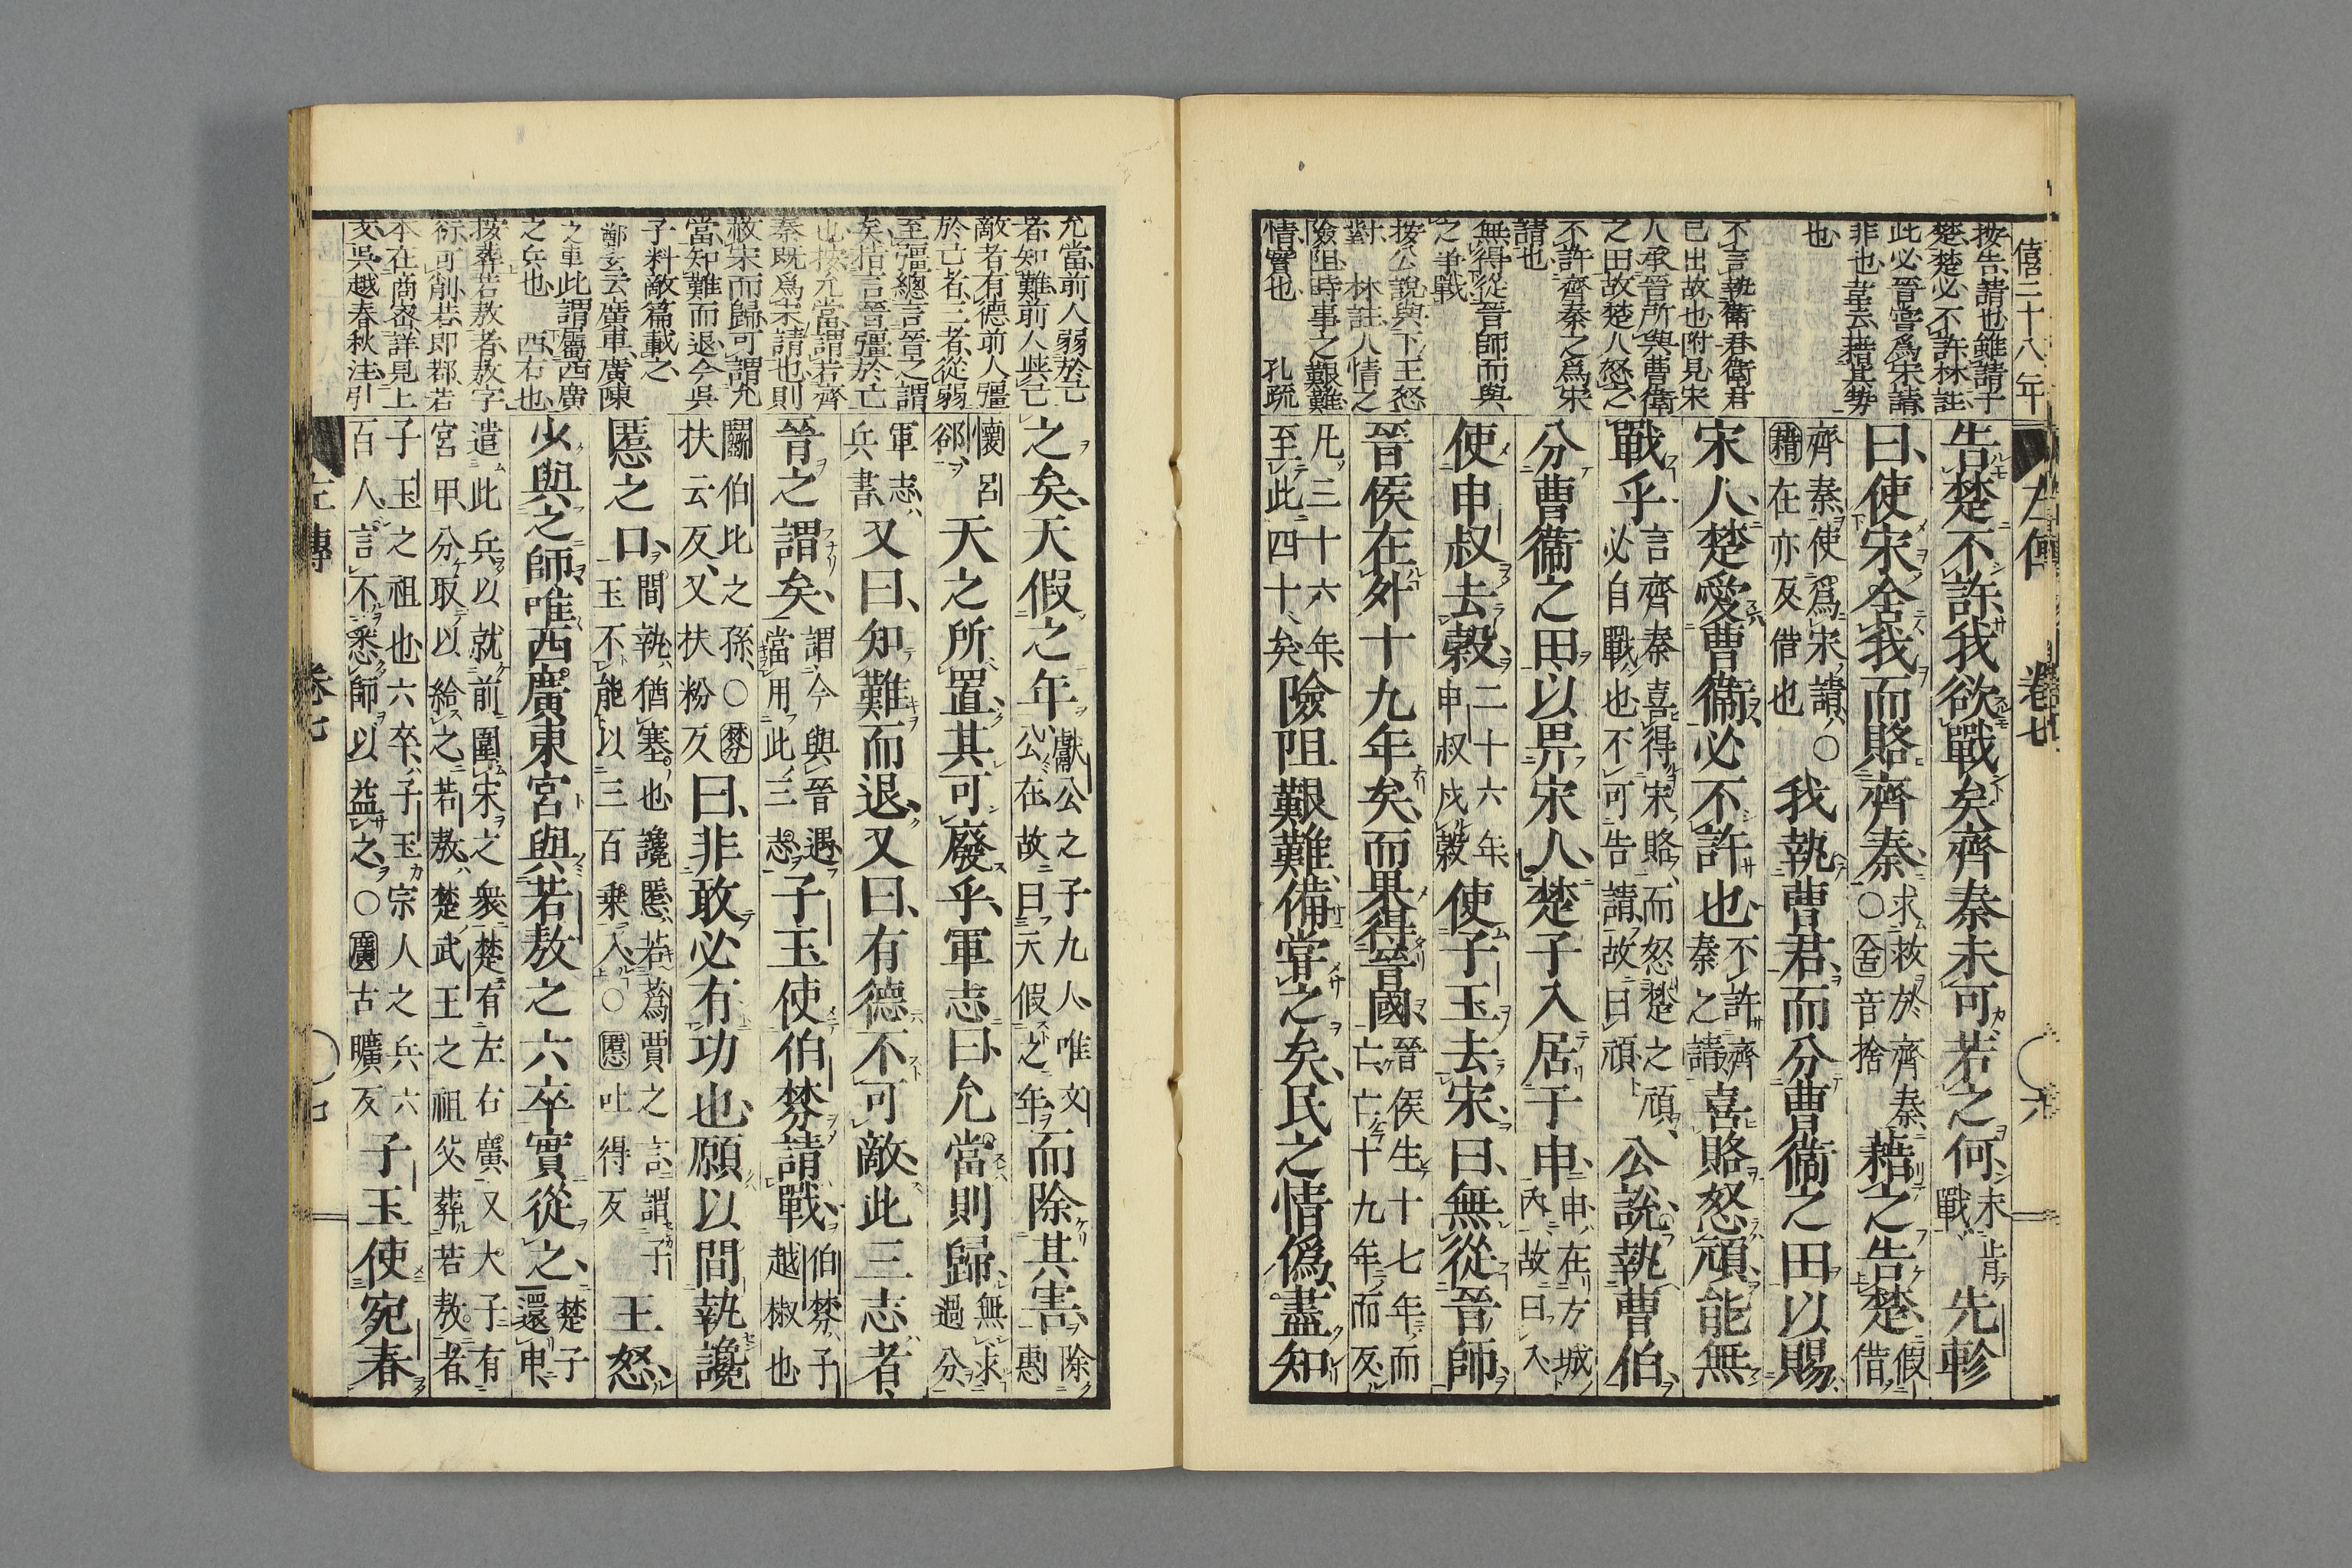 僖二十八年
左傳 卷七 六
按告請也雖請于
楚楚必不許林註
此必晉嘗爲宋請
非也韋云藉其勢
也
不言執衞君衞君
已出故也附見宋
人承晉所與曹衞
之田故楚人怒之
不許齊秦之爲宋
請也
無得從晉師而與
之爭戰
按公說與下王怒
對 林註人情之
險阻時事之艱難
情實也 孔疏
告楚不許我欲戰矣齊秦未可若之何未肯戰先軫
曰使宋舍我而賂齊秦求救於齊秦○舍音捨藉之告楚假借
齊秦使爲宋請○藉在亦反借也我執曹君而分曹衞之田以賜
宋人楚愛曹衞必不許也不許齊秦之請喜賂怒頑能無
戰乎言齊秦喜得宋賂而怒楚之頑必自戰也不可告請故曰頑公說執曹伯
分曹衞之田以畀宋人楚子入居于申申在方城內故曰入
使申叔去穀二十六年申叔戍穀使子玉去宋曰無從晉師
晉侯在外十九年矣而果得晉國晉侯生十七年而亡亡十九年而反
凡三十六年至此四十矣險阻艱難備嘗之矣民之情僞盡知
允當前人弱於亡
者知難前人與亡
敵者有德前人彊
於亡者三者從弱
至彊總言晉之謂
矣揩言晉彊於亡
也按允當謂若齊
秦既爲宋請也則
赦宋而歸可謂允
當知難而退今吳
子料敵篇載之
鄭玄云廣車廣陳
之車此謂屬西廣
之兵也 西右也
按葬若敖者敖字
衍可削若即郡若
本在商密詳見上
文吳越春秋注引
之矣天假之年獻公之子九人唯文公在故曰天假之年而除其害除惠
懷呂郤天之所置其可廢乎軍志曰允當則歸無求過分
軍志兵書又曰知難而退又曰有德不可敵此三志者
晉之謂矣謂今與晉遇當用此三志子玉使伯棼請戰伯棼子越椒也
鬭伯比之孫○棼扶云反又扶粉反曰非敢必有功也願以間執讒
慝之口間執猶塞也讒慝若蔿賈之言謂子玉不能以三百乘入○慝吐得反王怒
少與之師唯西廣東宮與若敖之六卒實從之楚子還申
遣此兵以就前圍宋之衆楚有左右廣又大子有宮甲分取以給之若敖楚武王之祖父葬若敖者
子玉之祖也六卒子玉宗人之兵六百人言不悉師以益之○廣古曠反子玉使宛春
左傳 卷七 七